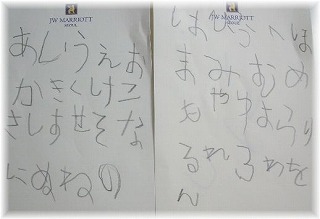 JW MARRIOTT
SEOUL
あいうえお
かきくけこ
さしすせそな
にぬねの
JW MARRIOTT
SEOUL
はひふへほ
まみむめ
もやゆよらり
るれろわを
ん